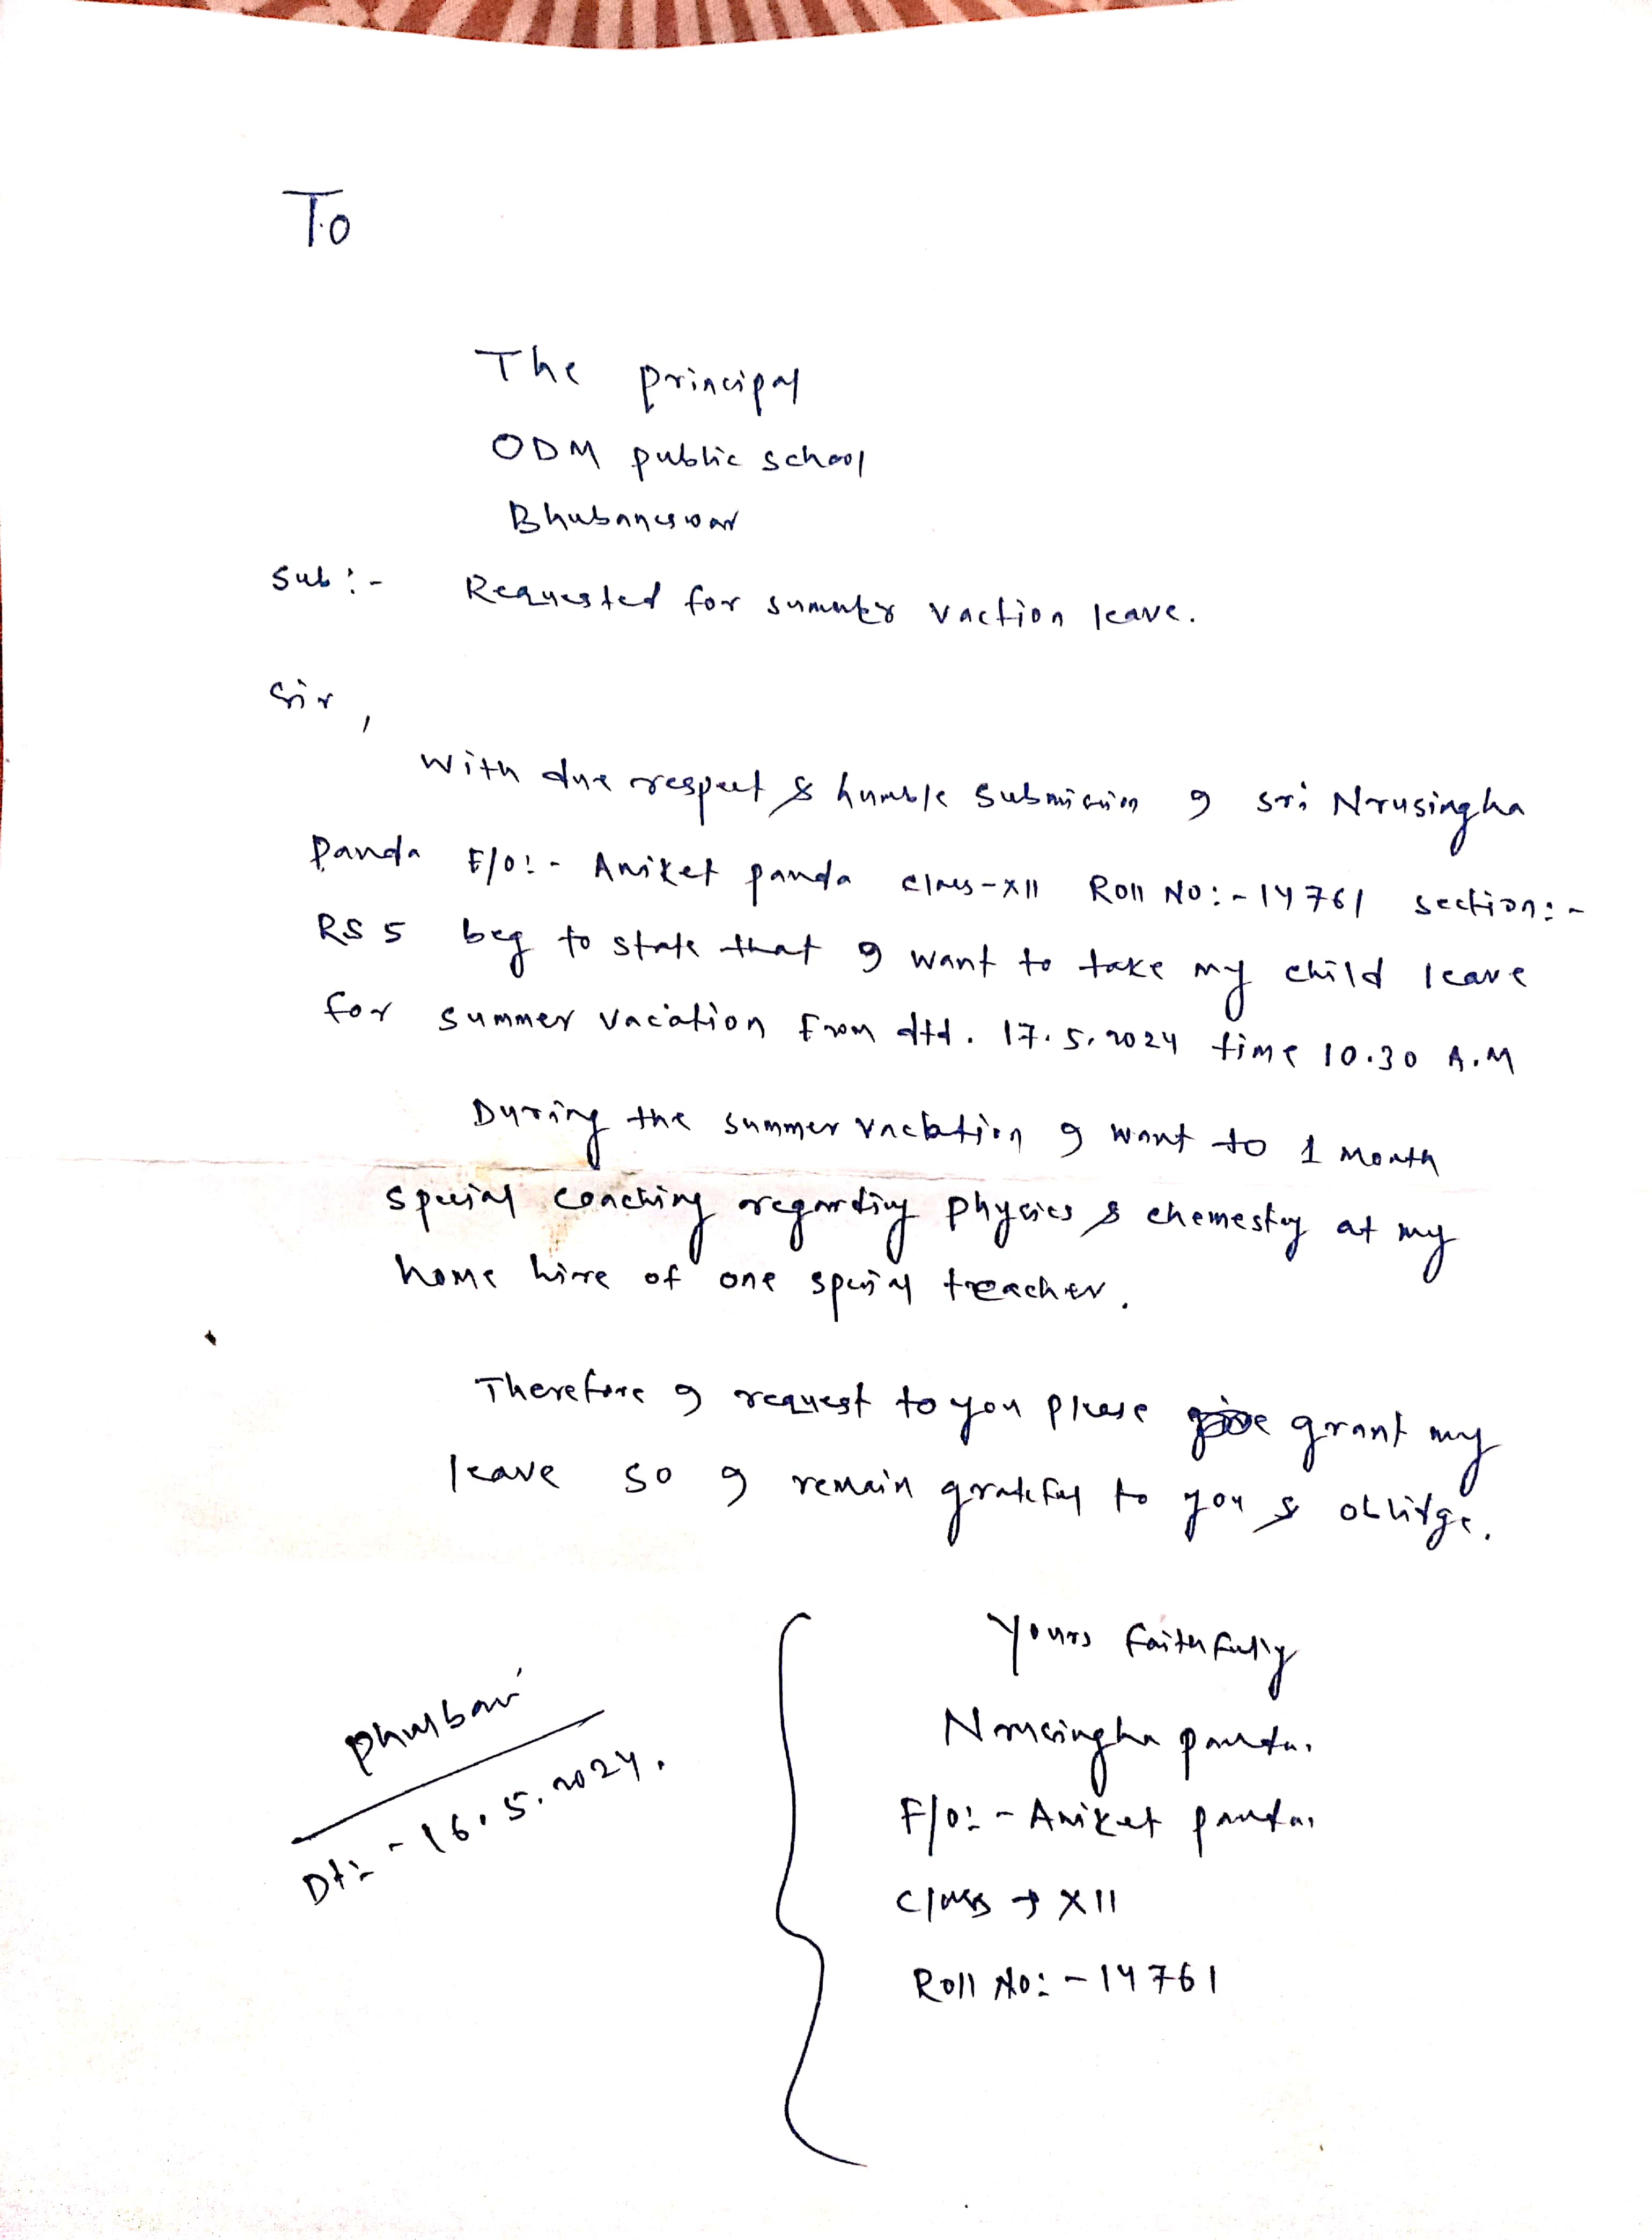 To
The principal
ODM public school
Bhubaneswar
Sub:- Requested for summer vaction leave.
Sir,
With due respect & humble submission I sri Nrusingha
Panda F/O:- Aniket panda class-XII Roll No:-14761 section:-
RS 5 beg to state that I want to take my child leave
for summer vacation from dtd. 17.5.2024 time 10.30 A.M
During the summer vacation I want to 1 month
special coaching regarding physics & chemestry at my
home hire of one special treacher.
Therefore I request to you please grant my
leave so I remain grateful to you & oblidge.
Yours faithfully
Nrusingha panda.
F/O:- Aniket panda.
Class → XII
Roll No:- 14761
phulbani
Dt:- 16.5.2024.